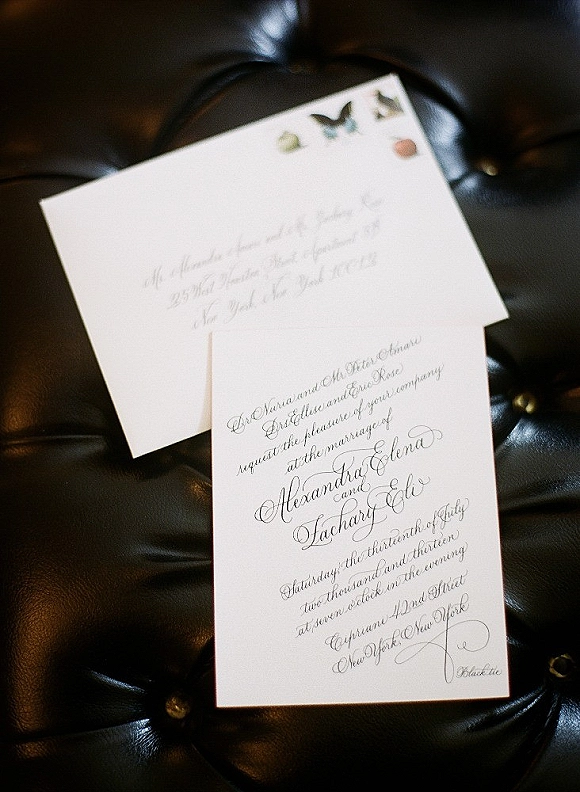 Ms. Alexandra Amari and Mr. Zachary Rose
225 West Houston Street, Apartment 3B
New York, New York 10012
Dr. Nuria and Mr. Peter Amari
Drs. Ellise and Eric Rose
request the pleasure of your company
at the marriage of
Alexandra Elena
and
Zachary Eli
Saturday, the thirteenth of July
two thousand and thirteen
at seven o'clock in the evening
Cipriani 42nd Street
New York, New York
Black tie